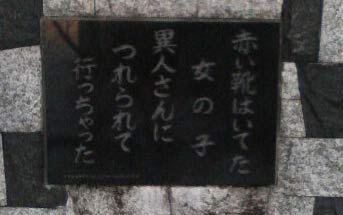 赤い靴はいてた
女の子
異人さんに
つれられて
行っちゃった